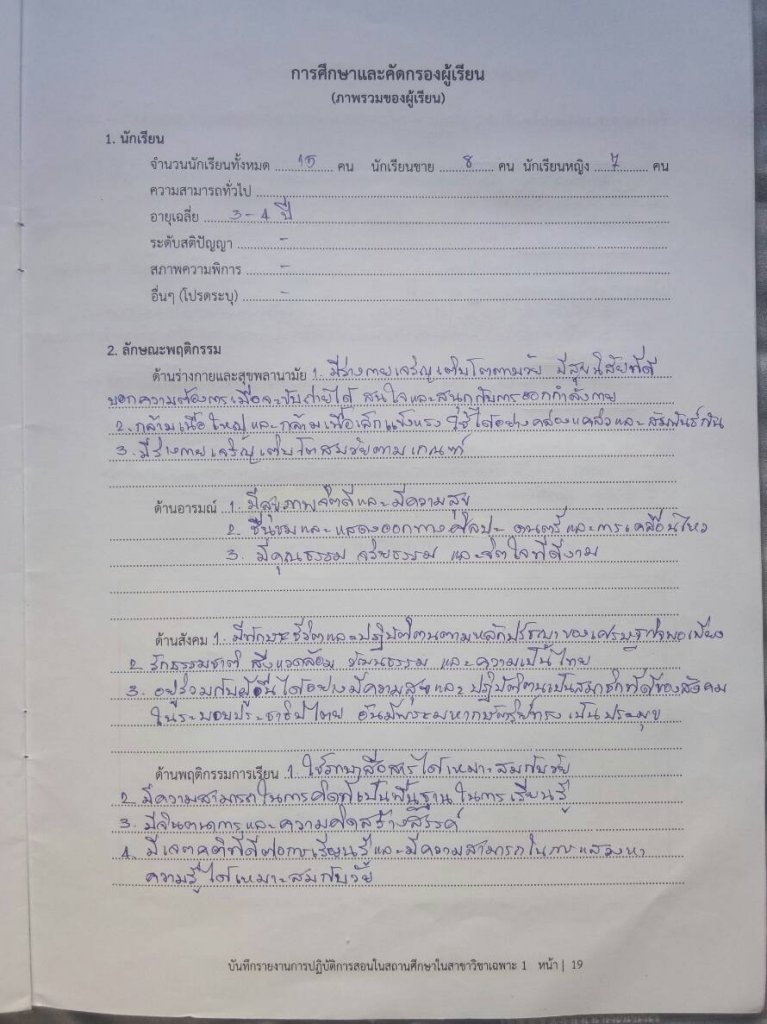 การศึกษาและคัดกรองผู้เรียน
(ภาพรวมของผู้เรียน)
1. นักเรียน
จำนวนนักเรียนทั้งหมด 15 คน นักเรียนชาย 8 คน นักเรียนหญิง 7 คน
ความสามารถทั่วไป
อายุเฉลี่ย 3-4 ปี
ระดับสติปัญญา -
สภาพความพิการ -
อื่นๆ (โปรดระบุ) -
2. ลักษณะพฤติกรรม
ด้านร่างกายและสุขพลานามัย 1. มีร่างกายเจริญเติบโตตามวัย มีสุขนิสัยที่ดี
บอกความต้องการเมื่อจะขับถ่ายได้ สนใจและสนุกกับการออกกำลังกาย
2. กล้ามเนื้อใหญ่และกล้ามเนื้อเล็กแข็งแรง ใช้ได้อย่างคล่องแคล่วและสัมพันธ์กัน
3. มีร่างกายเจริญเติบโตสมวัยตามเกณฑ์
ด้านอารมณ์ 1. มีสุขภาพจิตดีและมีความสุข
2. ชื่นชมและแสดงออกทางศิลปะ ดนตรีและการเคลื่อนไหว
3. มีคุณธรรม จริยธรรม และจิตใจที่ดีงาม
ด้านสังคม 1. มีทักษะชีวิตและปฏิบัติตนตามหลักปรัชญาของเศรษฐกิจพอเพียง
2. รักธรรมชาติ สิ่งแวดล้อม วัฒนธรรม และความเป็นไทย
3. อยู่ร่วมกับผู้อื่นได้อย่างมีความสุขและปฏิบัติตนเป็นสมาชิกที่ดีของสังคม
ในระบอบประชาธิปไตย อันมีพระมหากษัตริย์ทรงเป็นประมุข
ด้านพฤติกรรมการเรียน 1. ใช้ภาษาสื่อสารได้เหมาะสมกับวัย
2. มีความสามารถในการคิดที่เป็นพื้นฐานในการเรียนรู้
3. มีจินตนาการและความคิดสร้างสรรค์
4. มีเจตคติที่ดีต่อการเรียนรู้และมีความสามารถในการแสวงหา
ความรู้ได้เหมาะสมกับวัย
บันทึกรายงานการปฏิบัติการสอนในสถานศึกษาในสาขาวิชาเฉพาะ 1 หน้า | 19